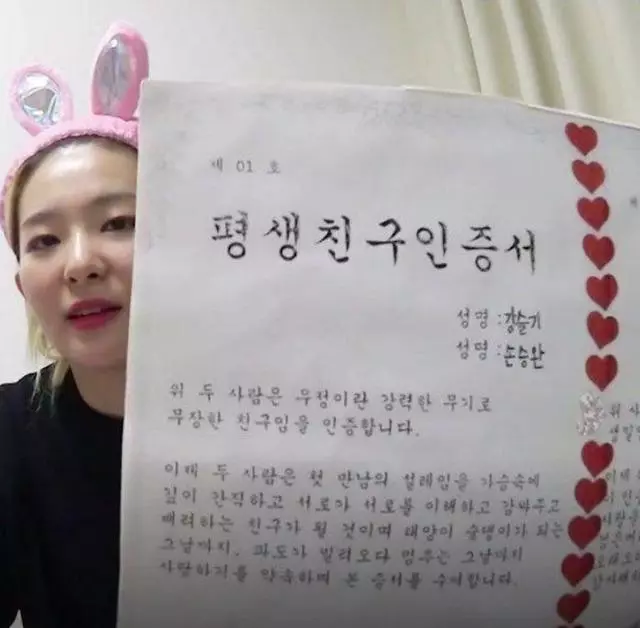 제 01 호
평생친구인증서
성명 : 강슬기
성명 : 손승완
위 두 사람은 우정이란 강력한 무기로
무장한 친구임을 인증합니다.
이제 두 사람은 첫 만남의 설레임을 가슴속에
깊이 간직하고 서로가 서로를 이해하고 감싸주고
배려하는 친구가 될 것이며 태양이 숯댕이가 되는
그날까지, 파도가 밀려오다 멈추는 그날까지
사랑하기를 약속하며 본 증서를 수여합니다.
제
위 사
생일
이제